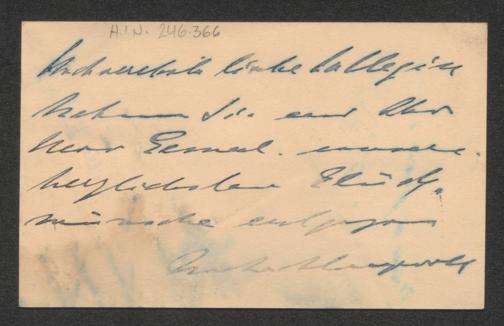 H.I.N. 246.366
Hochverehrte liebe Collegin
Nehmen Sie und Ihr
Herr Gemal unsere
herzlichsten Glück-
wünsche entgegen